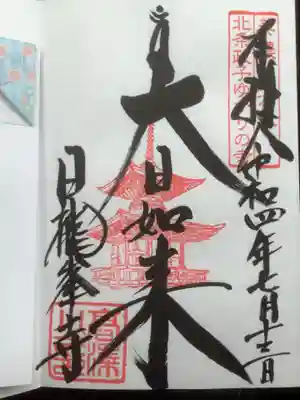 奉拝 令和四年七月十三日
北条政子ゆかりの寺
大日如来
日龍峯寺